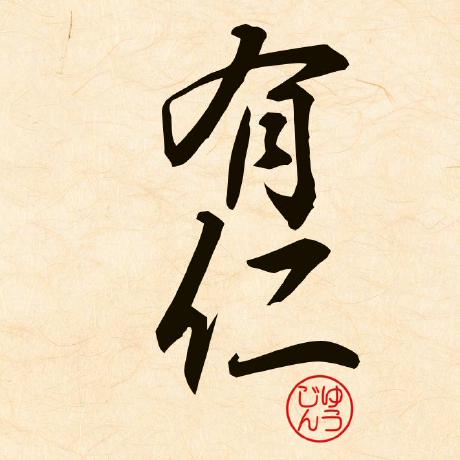 有仁
ゆう
じん